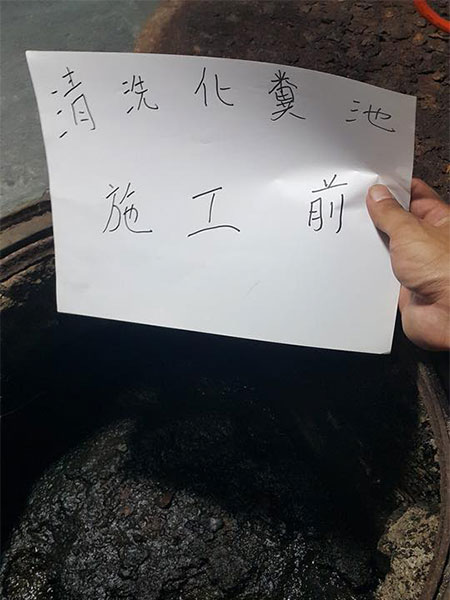 清洗化糞池
施工前